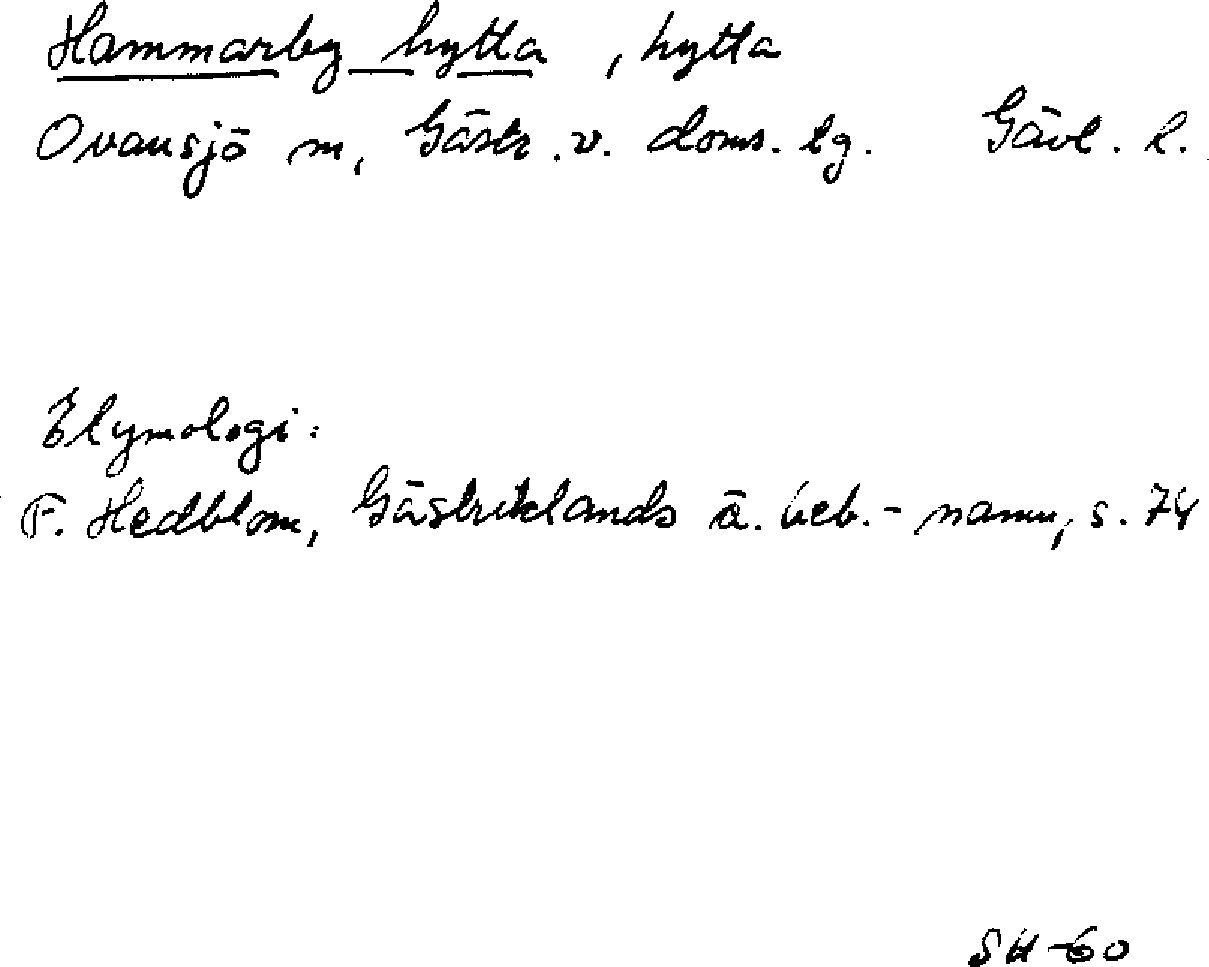 Hammarby hytta, hytta
Ovansjö sn, Gästr. v. doms. lg. Gävl. l.
Etymologi:
F. Hedblom, Gästriklands ä. beb.-namn, s. 74
SH-60